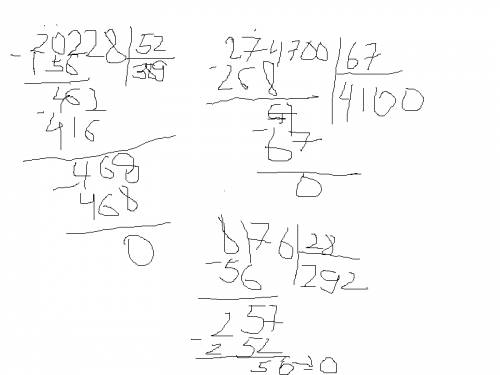 20228 52
- 156 389
462
- 416
468
- 468
0
274700 67
- 268 4100
67
- 67
0
8176 28
- 56 292
257
- 252
56=0